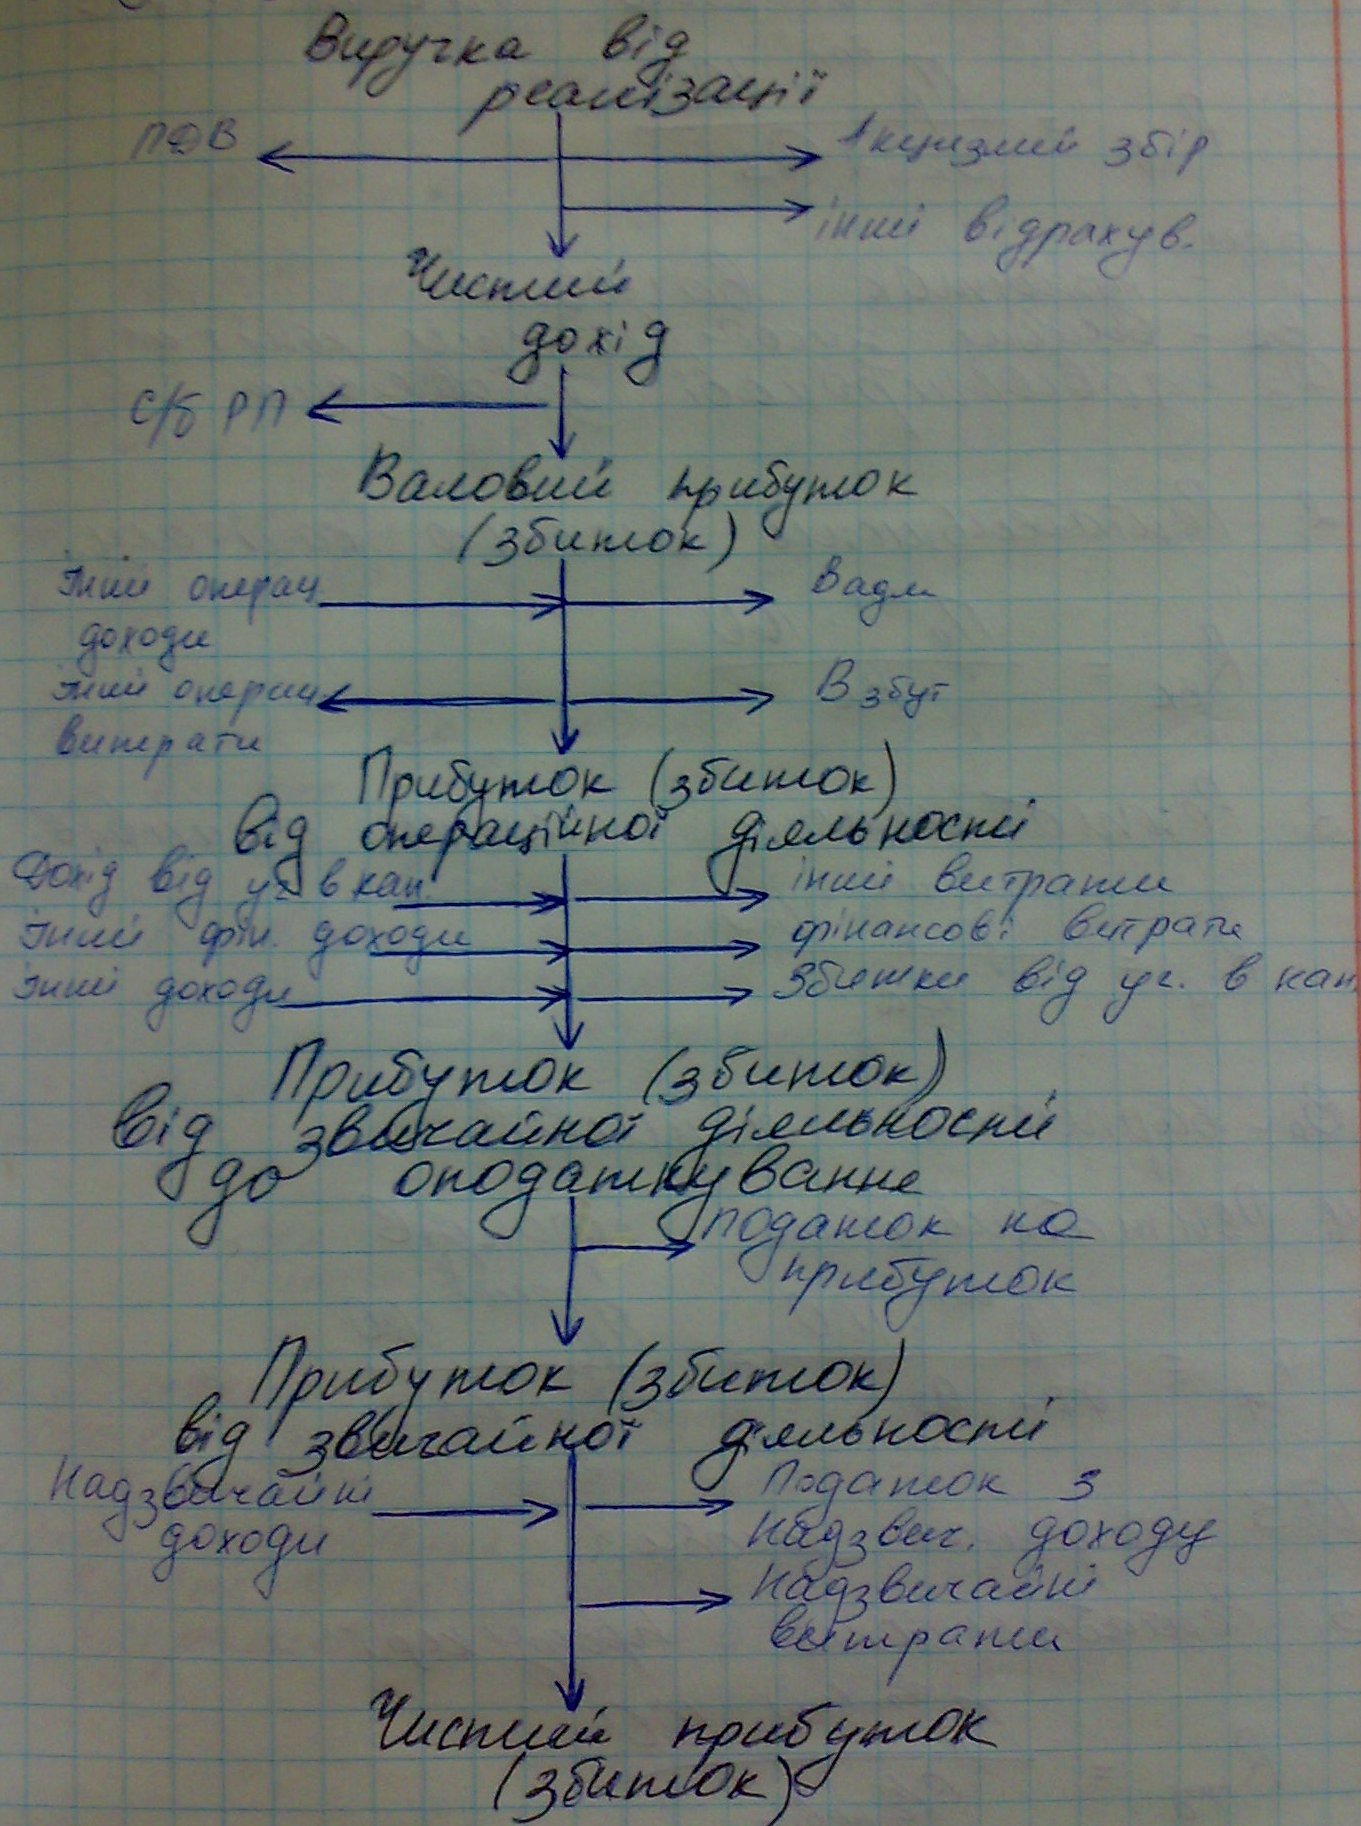 Виручка від
реалізації
ПДВ
Акцизний збір
інші відрахув.
Чистий
дохід
С/б РП
Валовий прибуток
(збиток)
Інші операц
доходи
Вадм
Інші операц
витрати
Взбут
Прибуток (збиток)
від операційної діяльності
Дохід від уч. в кап
інші витрати
Інші фін. доходи
фінансові витрати
Інші доходи
Збитки від уч. в кап.
Прибуток (збиток)
від звичайної діяльності
до оподаткування
податок на
прибуток
Прибуток (збиток)
від звичайної діяльності
Надзвичайні
доходи
Податок з
надзвич. доходу
Надзвичайні
витрати
Чистий прибуток
(збиток)